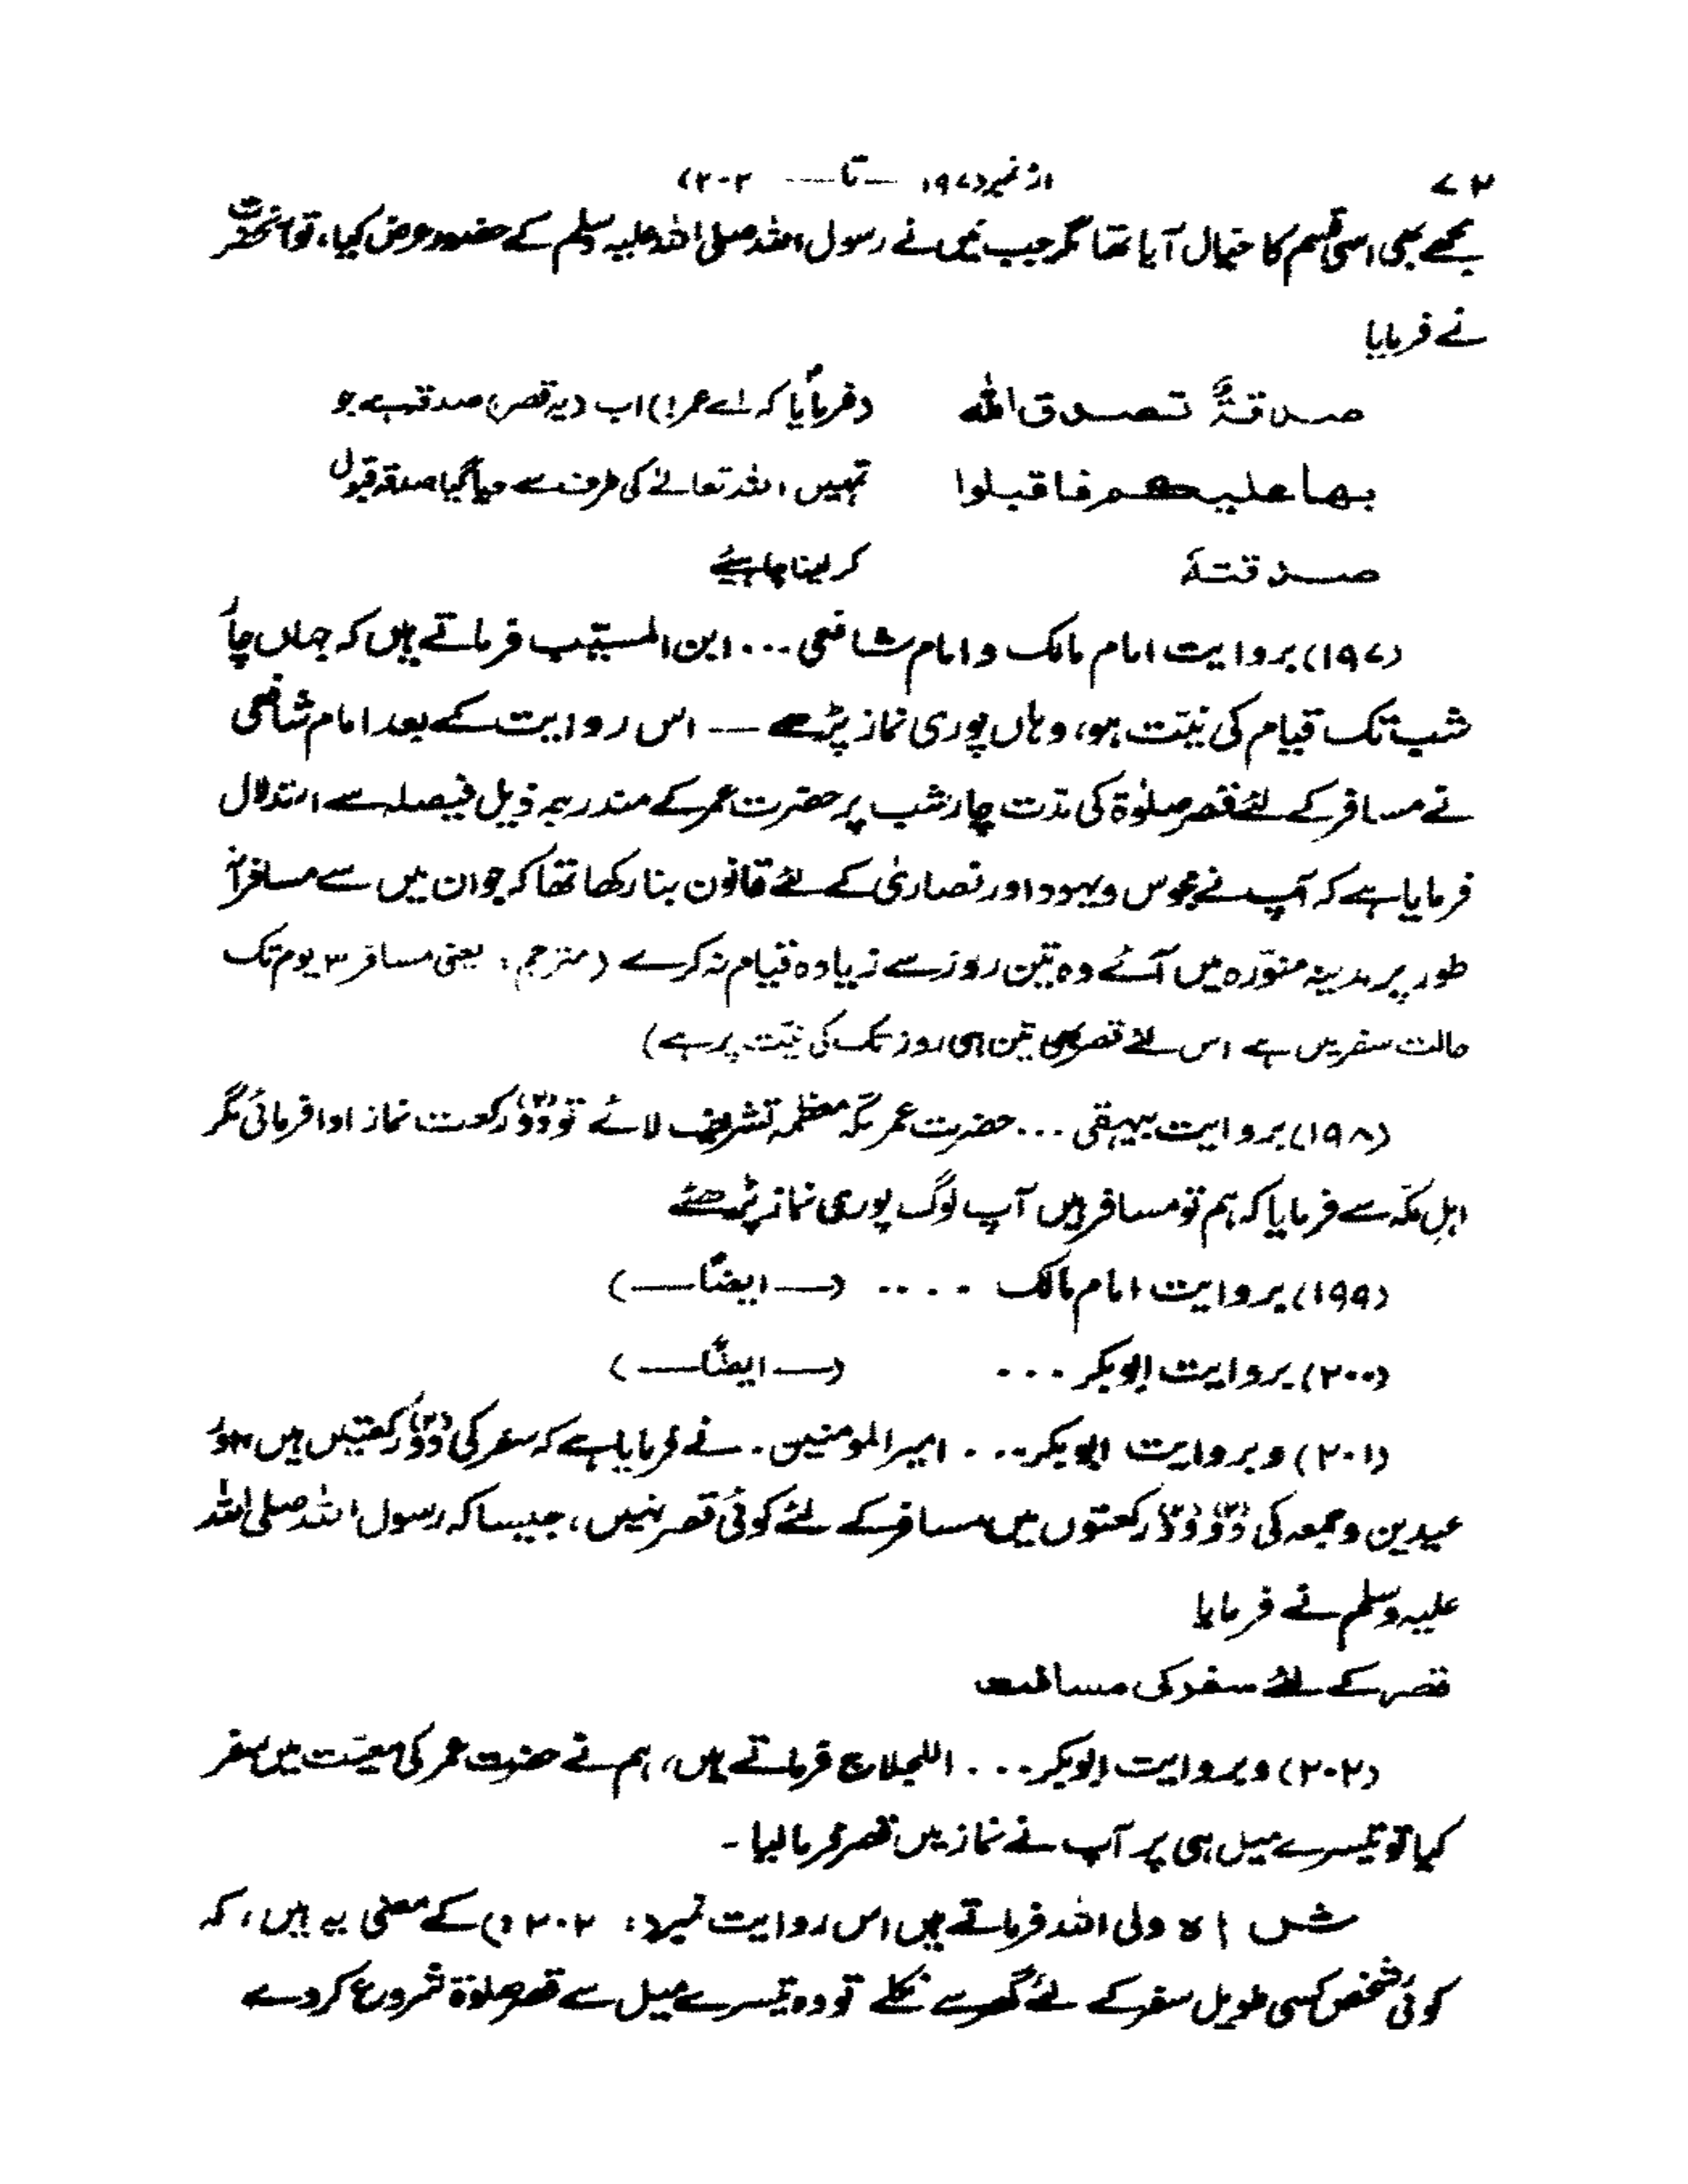 ۷۲ از نمبر (۱۹۷ — تا — ۲۰۲)
مجھے بھی اسی قسم کا خیال آیا تھا مگر جب میں نے رسول اللہ صلی اللہ علیہ وسلم کے حضور عرض کیا، تو آنحضرت
نے فرمایا
صدقۃٌ تصدق اللہ (فرمایا کہ اے عمر!) اب (یہ قصر) صدقہ ہے جو
بھا علیکم فاقبلوا تمہیں اللہ تعالےٰ کی طرف سے دیا گیا صدقہ قبول
صدقتہٗ کر لینا چاہیئے
(۱۹۷) بروایت امام مالک و امام شافعی ... ابن المسیّب فرماتے ہیں کہ جہاں چار
شب تک قیام کی نیّت ہو، وہاں پوری نماز پڑھے — اس روایت کے بعد امام شافعی
نے مسافر کے لئے قصر صلوٰۃ کی مدّت چار شب پر حضرت عمر کے مندرجہ ذیل فیصلہ سے استدلال
فرمایا ہے کہ آپ نے مجوس و یہود اور نصاریٰ کے لئے قانون بنا رکھا تھا کہ جو ان میں سے مسافرانہ
طور پر مدینہ منوّرہ میں آئے وہ تین روز سے زیادہ قیام نہ کرے (مترجم: یعنی مسافر ۳ یوم تک
حالت سفر میں ہے اس لئے قصر بھی تین ہی روز تک کی نیّت پر ہے)
(۱۹۸) بروایت بیہقی ... حضرت عمر مکّہ معظمہ تشریف لائے تو دو (۲) رکعت نماز ادا فرمائی مگر
اہلِ مکّہ سے فرمایا کہ ہم تو مسافر ہیں آپ لوگ پوری نماز پڑھئے
(۱۹۹) بروایت امام مالک .... (— ایضاً —)
(۲۰۰) بروایت ابوبکر ... (— ایضاً —)
(۲۰۱) و بروایت ابوبکر ... امیر المومنین۔ نے فرمایا ہے کہ سفر کی دو (۲) رکعتیں ہیں اور
عیدین و جمعہ کی دو (۲) دو (۲) رکعتوں میں مسافر کے لئے کوئی قصر نہیں، جیسا کہ رسول اللہ صلی اللہ
علیہ وسلم نے فرمایا
قصر کے لئے سفر کی مسافت
(۲۰۲) و بروایت ابوبکر ... اللجلاج فرماتے ہیں، ہم نے حضرت عمر کی معیّت میں سفر
کیا تو تیسرے میل ہی پر آپ نے نماز میں قصر فرما لیا۔
شاہ ولی اللہ فرماتے ہیں اس روایت نمبر (۲۰۲) کے معنی یہ ہیں، کہ
کوئی شخص کسی طویل سفر کے لئے گھر سے نکلے تو وہ تیسرے میل سے قصر صلوٰۃ شروع کر دے